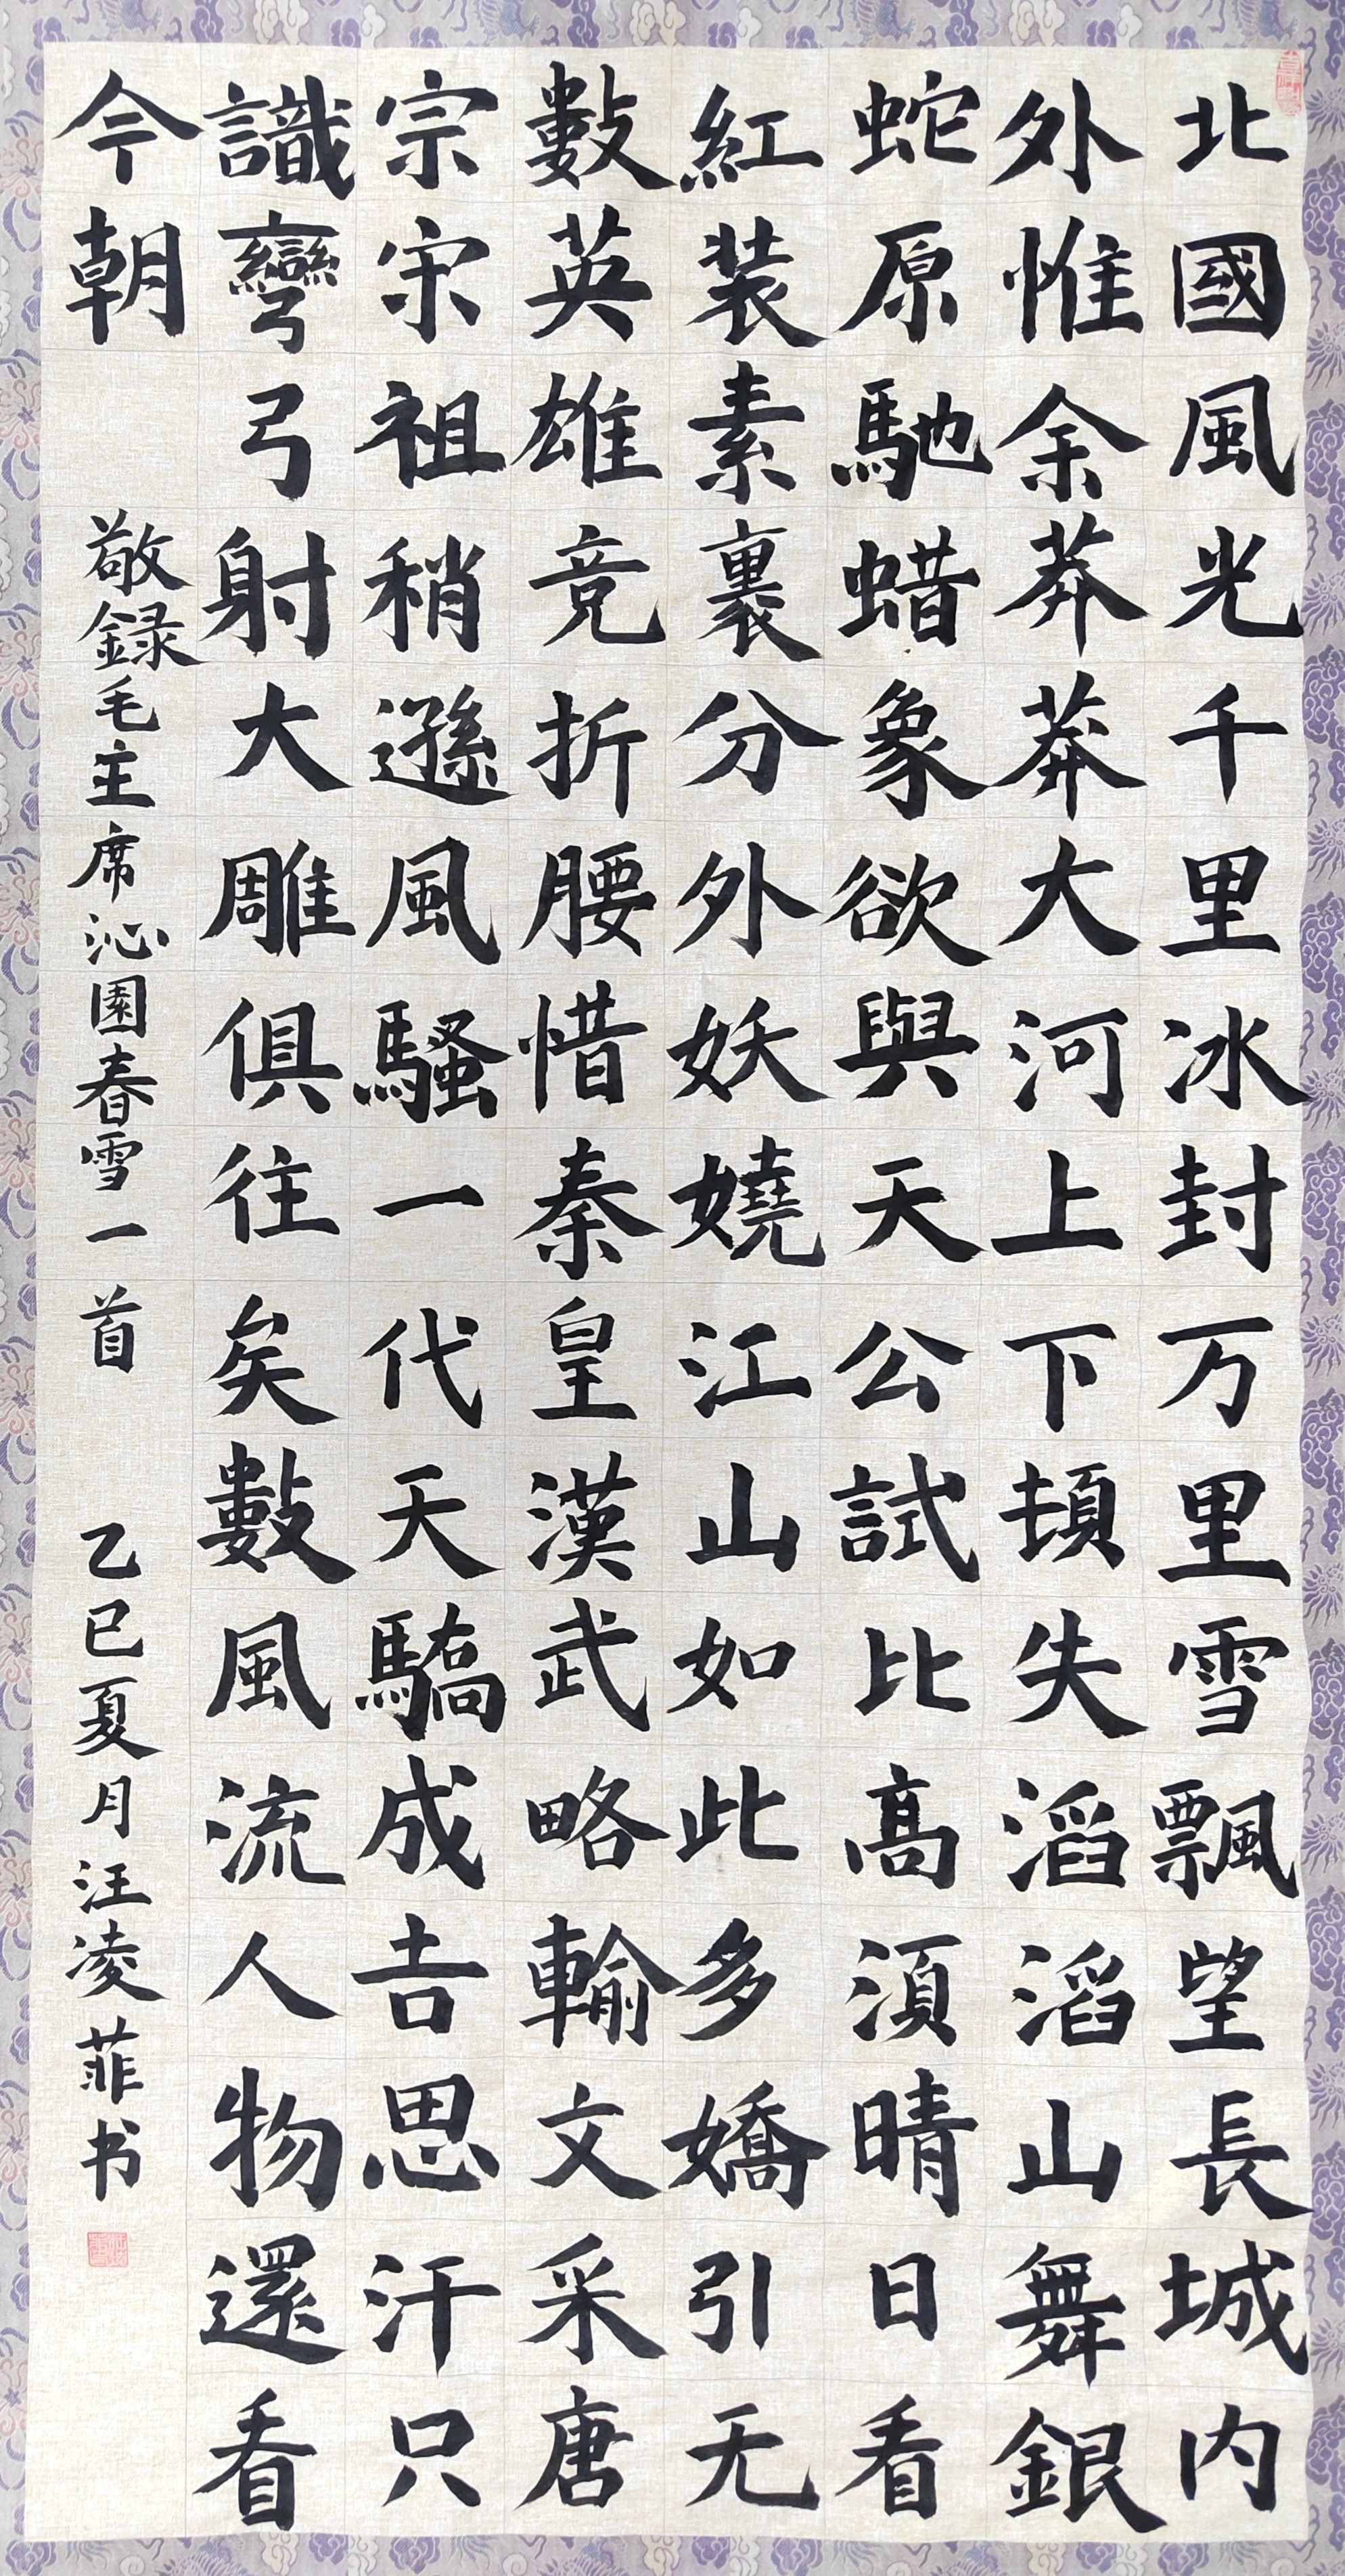 北國風光千里冰封万里雪飄望長城内
外惟余莽莽大河上下頓失滔滔山舞銀
蛇原馳蜡象欲與天公試比高須晴日看
紅装素裹分外妖嬈江山如此多嬌引无
數英雄竞折腰惜秦皇漢武略輸文采唐
宗宋祖稍遜風騷一代天驕成吉思汗只
識彎弓射大雕俱往矣數風流人物還看
今朝
敬録毛主席沁園春雪一首 乙巳夏月汪凌菲书